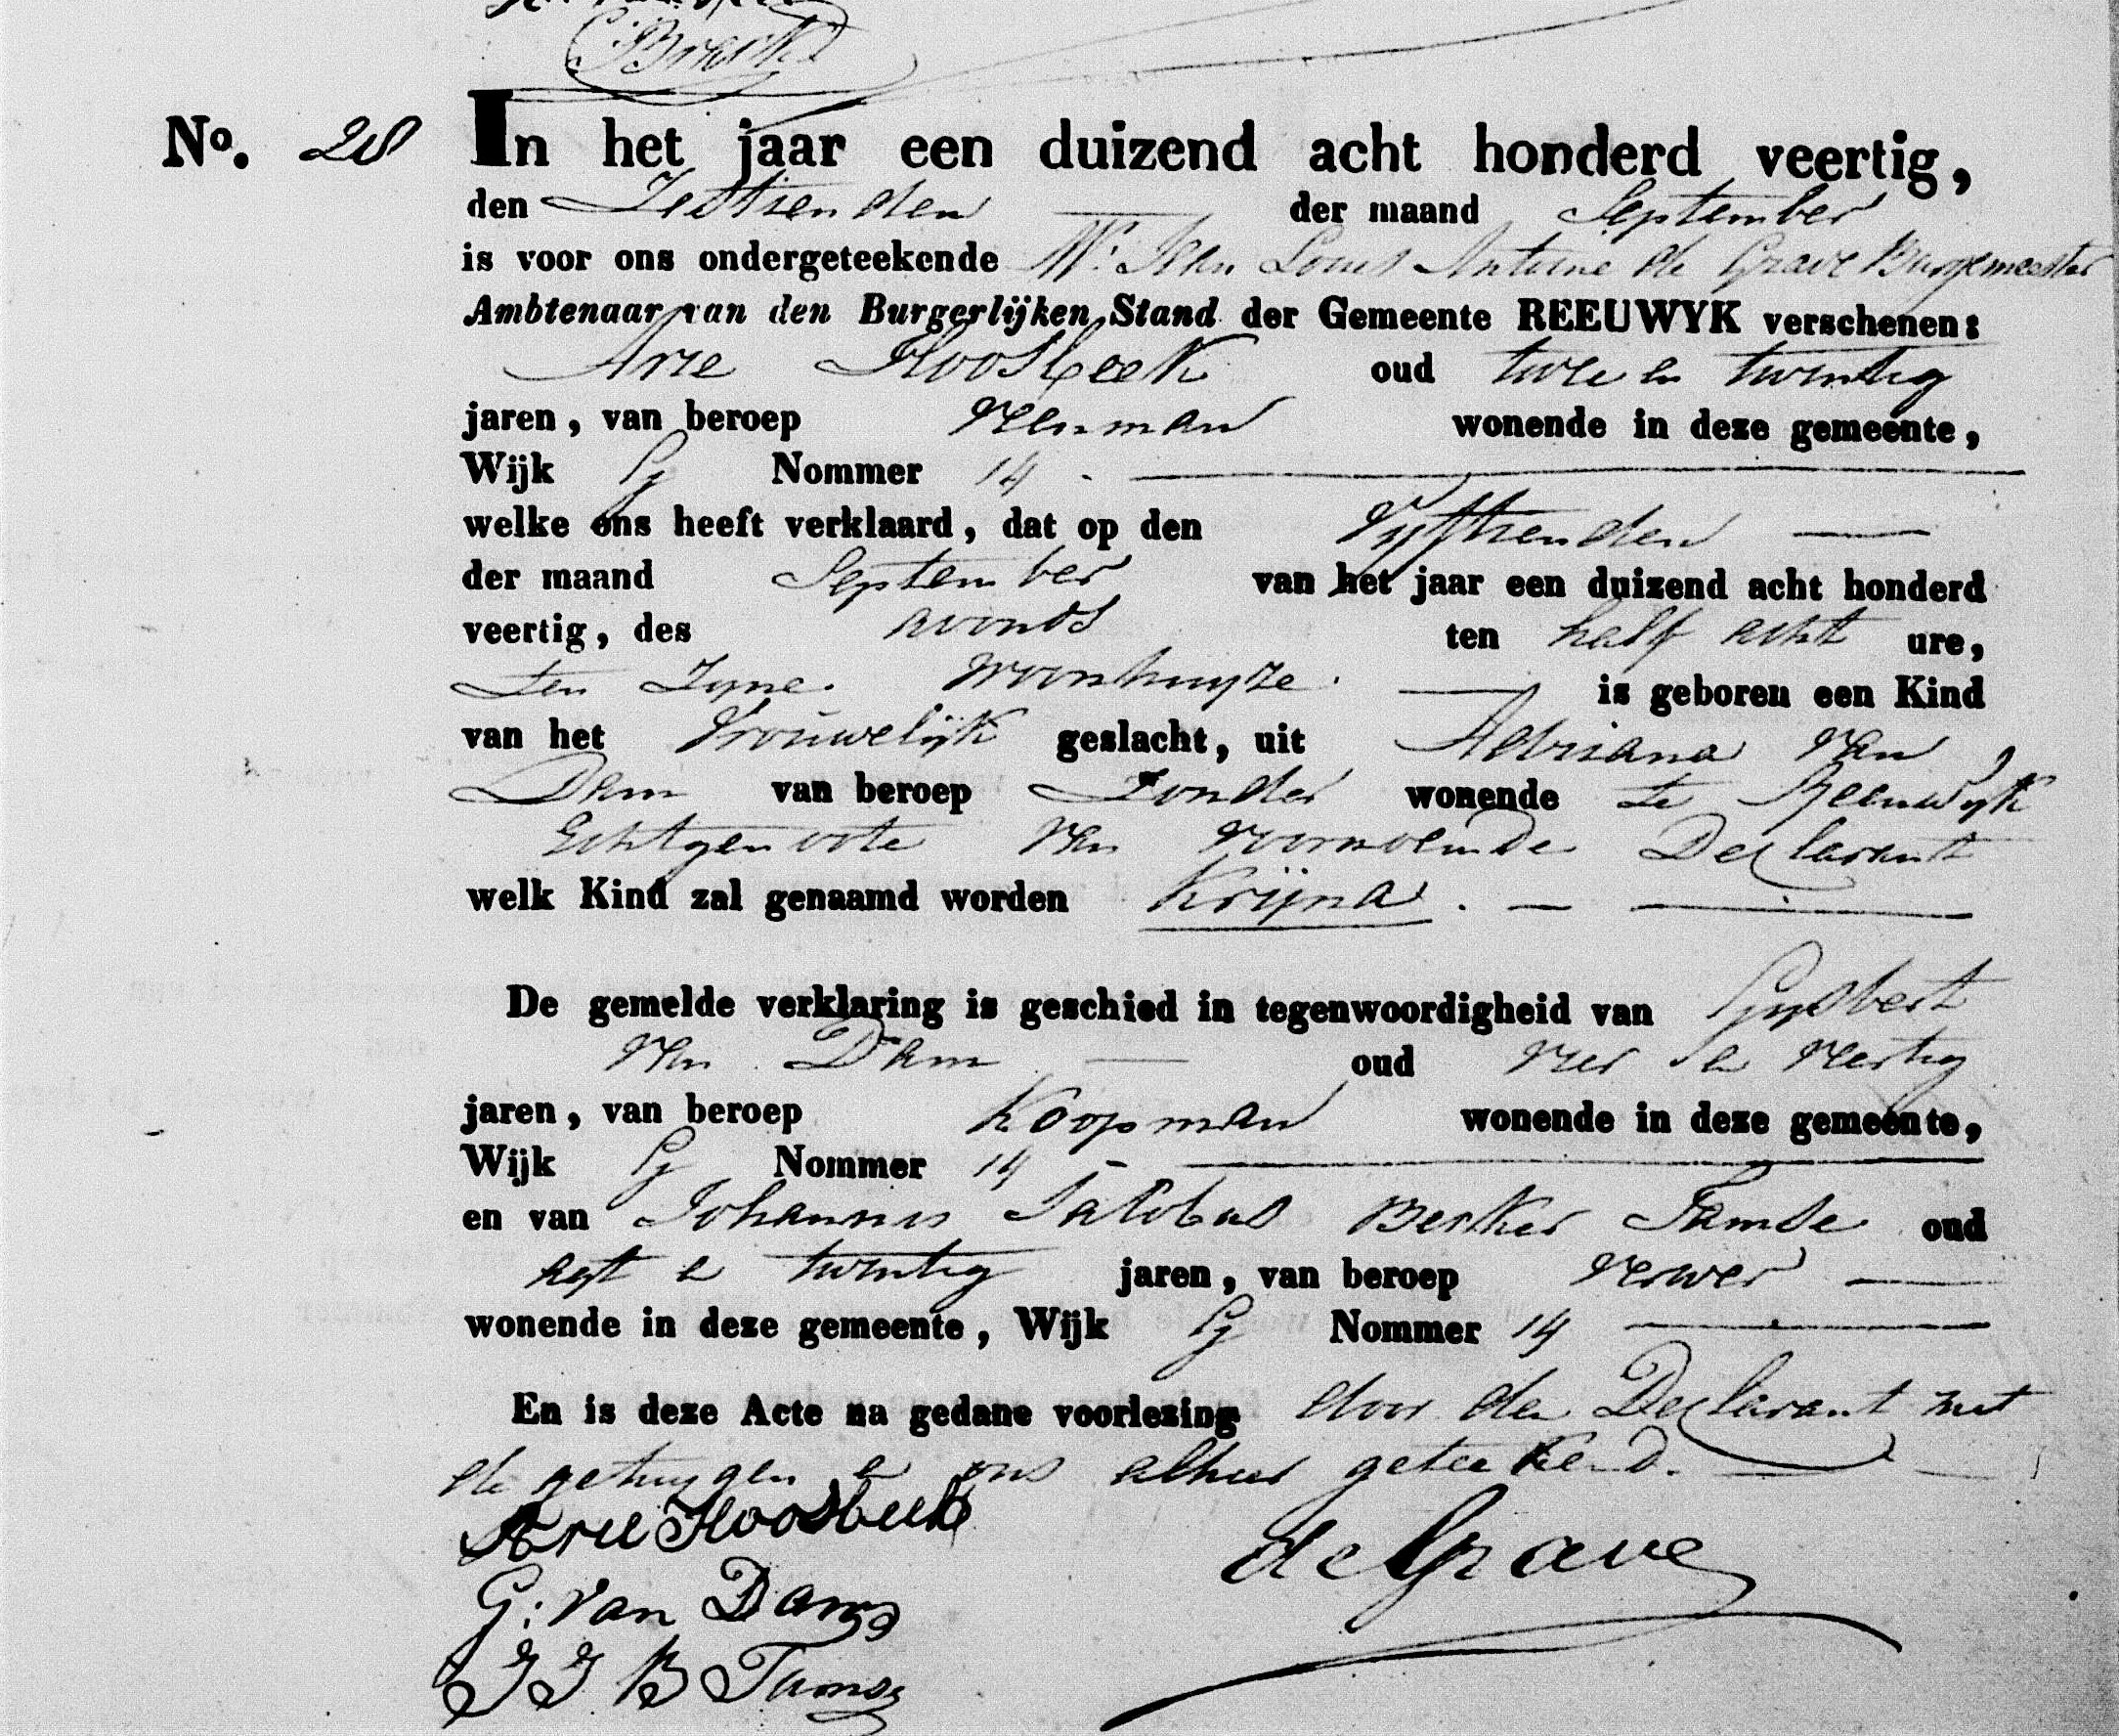 No. 28 In het jaar een duizend acht honderd veertig,
den Zestienden der maand September
is voor ons ondergeteekende Mr. Jean Louis Antoine de Grave Burgemeester
Ambtenaar van den Burgerlijken Stand der Gemeente REEUWYK verschenen:
Arie Hoosbeek oud twee en twintig
jaren, van beroep Veenman wonende in deze gemeente,
Wijk G Nommer 14
welke ons heeft verklaard, dat op den Vyftienden
der maand September van het jaar een duizend acht honderd
veertig, des avonds ten half acht ure,
ten Zyne Woonhuyze. is geboren een Kind
van het Vrouwelijk geslacht, uit Adriana Van
Dam van beroep Zonder wonende te Reeuwyk
Echtgenoote Van voornoemde Declarant
welk Kind zal genaamd worden Krijna.
De gemelde verklaring is geschied in tegenwoordigheid van Gysbert
Van Dam oud vier en veertig
jaren, van beroep Koopman wonende in deze gemeente,
Wijk G Nommer 14
en van Johannis Jacobus Tamse oud
agt en twintig jaren, van beroep Verwer
wonende in deze gemeente, Wijk G Nommer 14
En is deze Acte na gedane voorlezing door den Declarant met
de getuygen en ons alhier geteekend.
Arie Hoosbeek
de Grave
G: van Dam
J J B Tamse